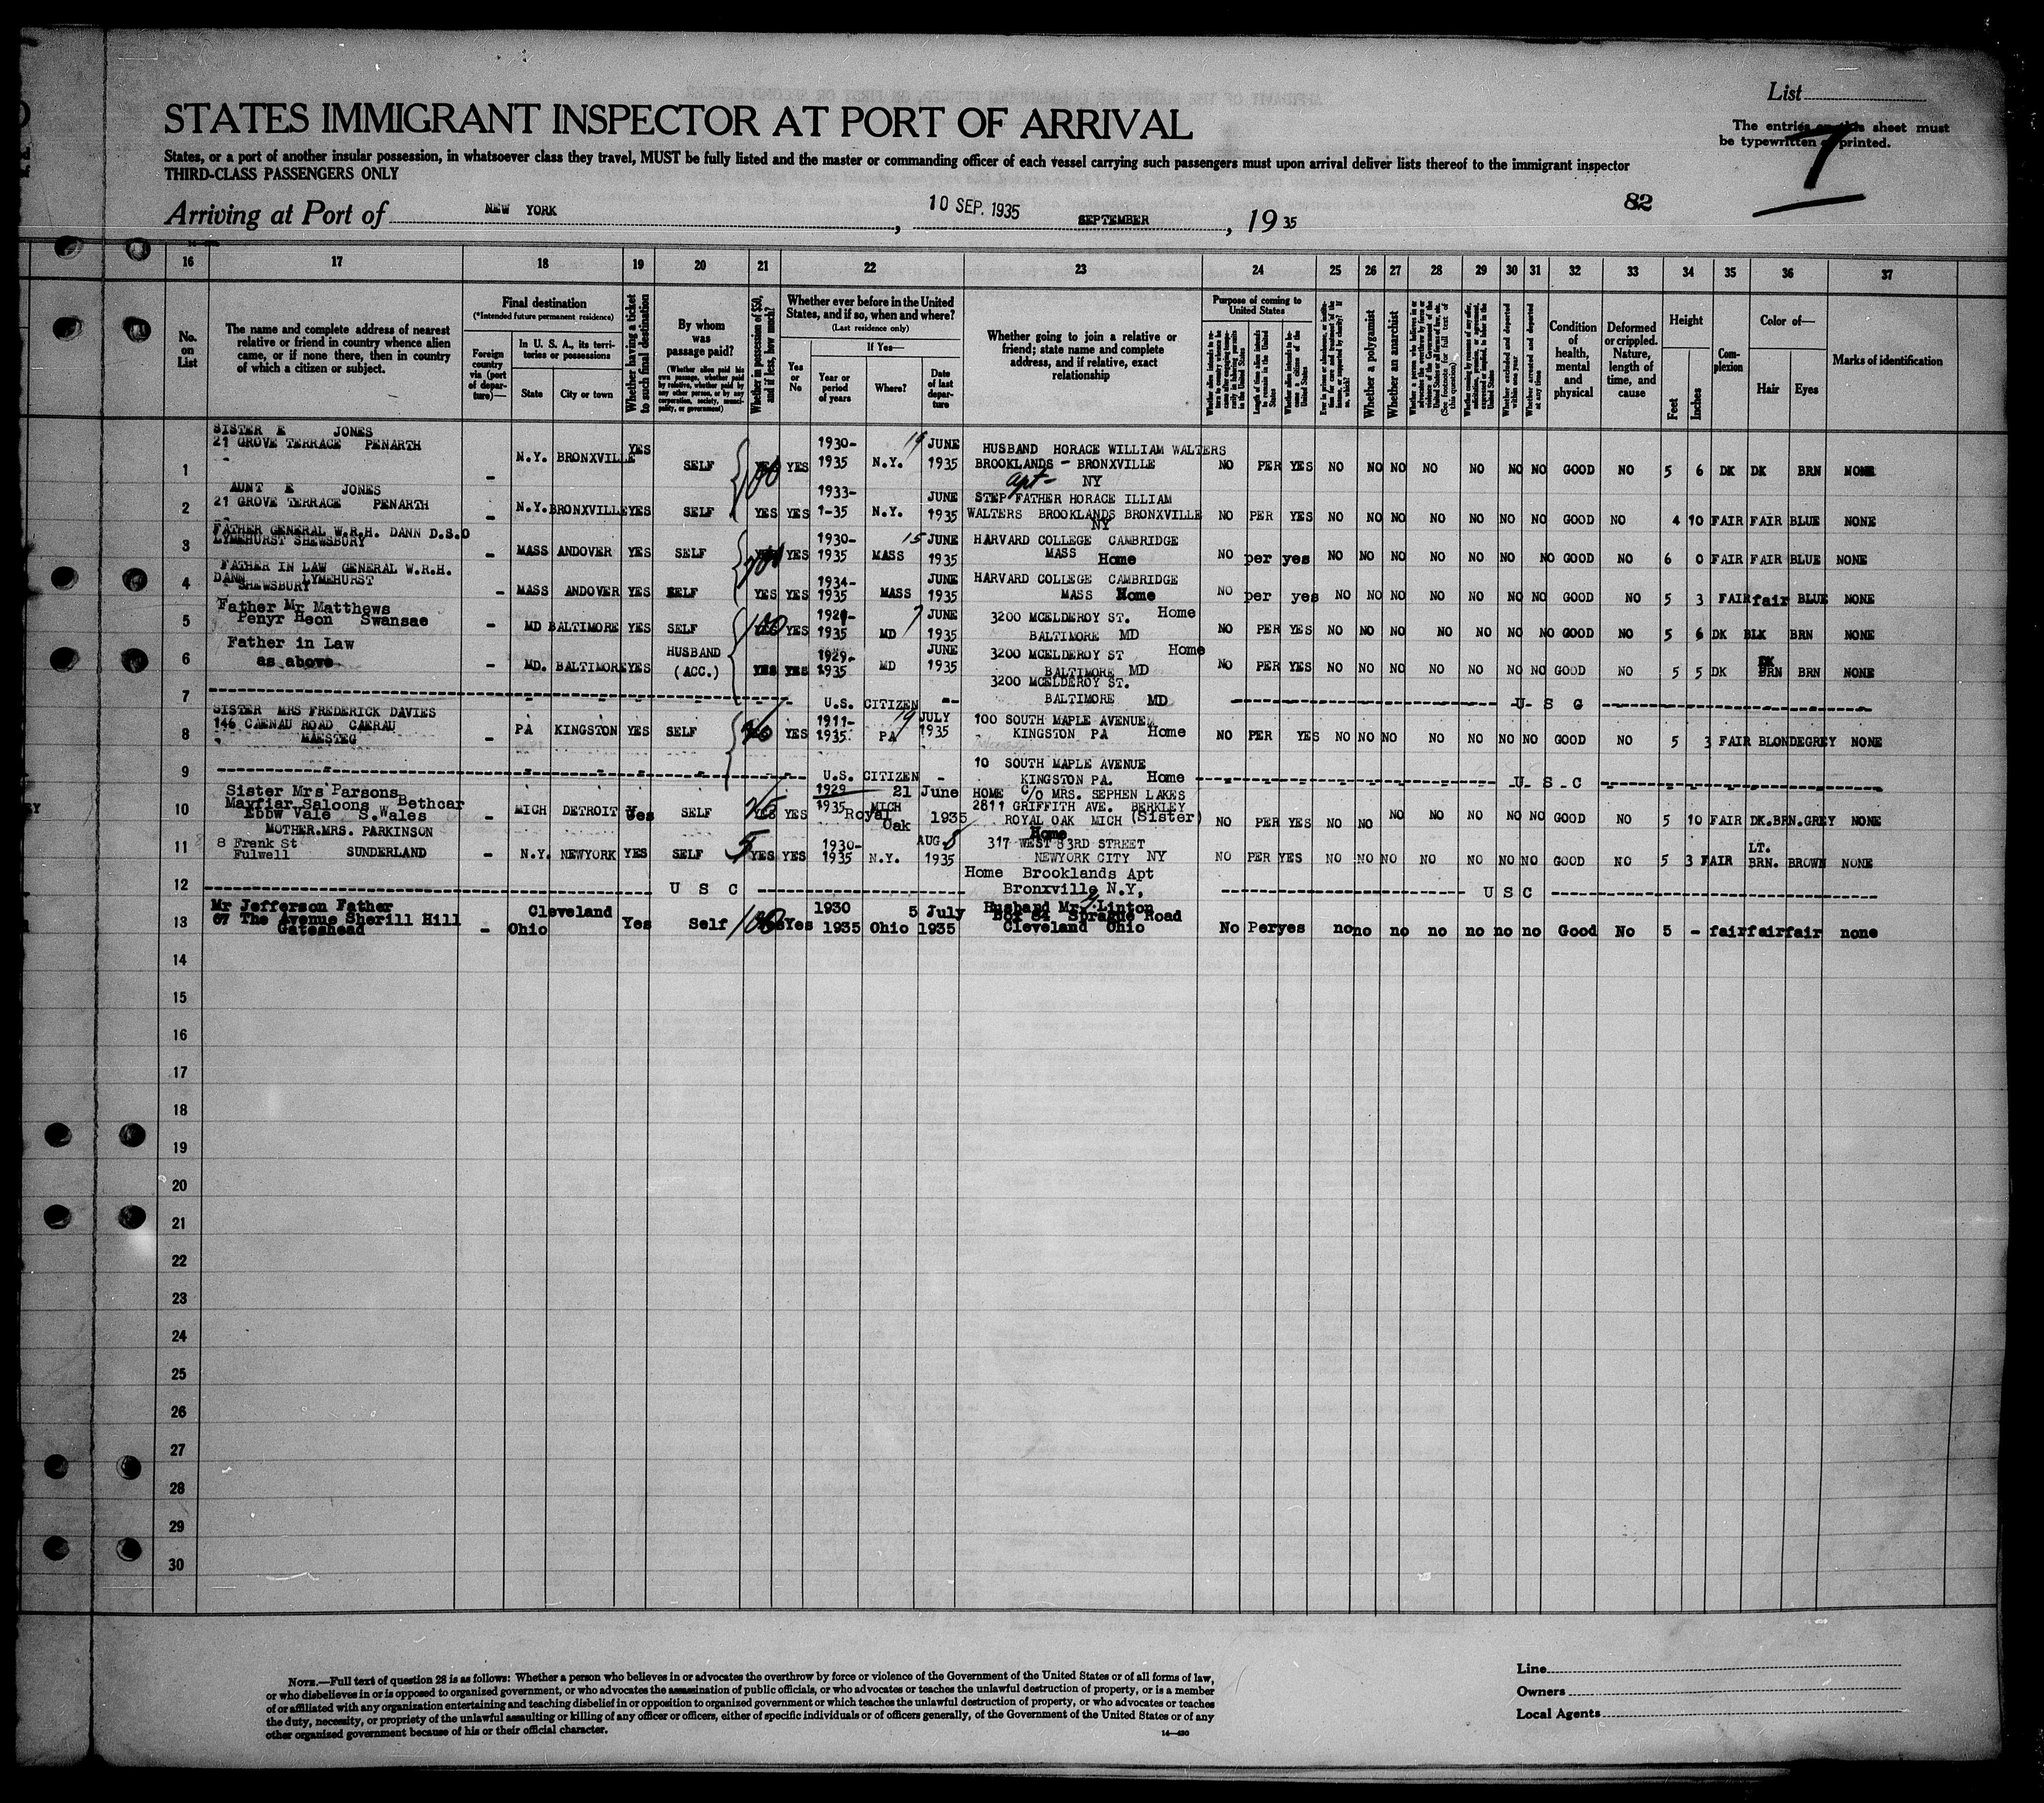 List
STATES IMMIGRANT INSPECTOR AT PORT OF ARRIVAL
The entries on this sheet must
be typewritten or printed.
7
States, or a port of another insular possession, in whatsoever class they travel, MUST be fully listed and the master or commanding officer of each vessel carrying such passengers must upon arrival deliver lists thereof to the immigrant inspector
THIRD-CLASS PASSENGERS ONLY
Arriving at Port of NEW YORK, 10 SEP. 1935 SEPTEMBER, 19 35
82
16 17 18 19 20 21 22 23 24 25 26 27 28 29 30 31 32 33 34 35 36 37
No. on List
The name and complete address of nearest relative or friend in country whence alien came, or if none there, then in country of which a citizen or subject.
Final destination
(*Intended future permanent residence)
Foreign country via (port of departure)—
In U. S. A., its territories or possessions
State
City or town
Whether having a ticket to such final destination
By whom was passage paid?
(Whether alien paid his own passage, whether paid by relative, whether paid by any other person, or by any corporation, society, municipality, or government)
Whether in possession of $50, and if less, how much?
Whether ever before in the United States, and if so, when and where?
(Last residence only)
Yes or No
If Yes—
Year or period of years
Where?
Date of last departure
Whether going to join a relative or friend; state name and complete address, and if relative, exact relationship
Purpose of coming to United States
Length of time alien intends to remain in the United States
Whether alien intends to become a citizen of the United States
Whether a polygamist
Whether an anarchist
Whether excluded and deported within one year
Whether arrested and deported at any time
Condition of health, mental and physical
Deformed or crippled. Nature, length of time, and cause
Height
Feet
Inches
Complexion
Color of—
Hair
Eyes
Marks of identification
SISTER E JONES
1 21 GROVE TERRACE PENARTH - N.Y. BRONXVILLE YES SELF YES YES 1930-1935 N.Y. 19 JUNE 1935 HUSBAND HORACE WILLIAM WALTERS BROOKLANDS - BRONXVILLE Apt- NY NO PER YES NO NO NO NO NO NO NO GOOD NO 5 6 DK DK BRN NONE
AUNT E JONES
2 21 GROVE TERRACE PENARTH - N.Y. BRONXVILLE YES SELF YES YES 1933-1-35 N.Y. JUNE 1935 STEP FATHER HORACE ILLIAM WALTERS BROOKLANDS BRONXVILLE NY NO PER YES NO NO NO NO NO NO NO GOOD NO 4 10 FAIR FAIR BLUE NONE
FATHER GENERAL W.R.H. DANN D.S.O
3 LYMEHURST SHEWSBURY - MASS ANDOVER YES SELF YES 1930-1935 MASS 15 JUNE 1935 HARVARD COLLEGE CAMBRIDGE MASS Home NO per yes NO NO NO NO NO NO NO GOOD NO 6 0 FAIR FAIR BLUE NONE
FATHER IN LAW GENERAL W.R.H.
4 DANN LYMEHURST SHEWSBURY - MASS ANDOVER YES SELF YES YES 1934-1935 MASS JUNE 1935 HARVARD COLLEGE CAMBRIDGE MASS Home NO per yes NO NO NO NO NO NO NO GOOD NO 5 3 FAIR fair BLUE NONE
Father Mr Matthews
5 Penyr Heon Swansae - MD BALTIMORE YES SELF 100 YES 1935 MD 7 JUNE 1935 3200 MCELDEROY ST. Home BALTIMORE MD NO PER YES NO NO NO NO NO NO NO GOOD NO 5 6 DK BLK BRN NONE
Father in Law
6 as above - MD. BALTIMORE YES HUSBAND (ACC.) YES YES 1929-1935 MD JUNE 1935 3200 MCELDEROY ST Home BALTIMORE MD NO PER YES NO NO NO NO NO NO NO GOOD NO 5 5 DK DK BRN BRN NONE
7 U.S. CITIZEN -- 3200 MCELDEROY ST. BALTIMORE MD U S G
SISTER MRS FREDERICK DAVIES
8 146 CAENAU ROAD CAERAU MAESTEG - PA KINGSTON YES SELF YES 1911-1935 PA 19 JULY 1935 100 SOUTH MAPLE AVENUE KINGSTON PA Home NO PER YES NO NO NO NO NO NO NO GOOD NO 5 3 FAIR BLONDE GREY NONE
9 U.S. CITIZEN - 10 SOUTH MAPLE AVENUE KINGSTON PA. Home U S C
Sister Mrs Parsons
10 Mayfiar Saloons Bethcar Ebbw Vale S.Wales MICH DETROIT Yes SELF YES YES 1929 1935 MICH Royal Oak 21 June 1935 HOME C/O MRS. SEPHEN LAKES 2811 GRIFFITH AVE. BERKLEY ROYAL OAK MICH (Sister) NO PER YES NO NO NO NO NO NO NO GOOD NO 5 10 FAIR DK.BRN. GREY NONE
MOTHER.MRS. PARKINSON
11 8 Frenk St Fulwell SUNDERLAND - N.Y. NEWYORK YES SELF 5 YES YES 1930-1935 N.Y. AUG 8 1935 Home 317 WEST 83RD STREET NEWYORK CITY NY NO PER YES NO NO NO NO NO NO NO GOOD NO 5 3 FAIR LT. BRN. BROWN NONE
12 U S C Home Brooklands Apt Bronxville N.Y. U S C
Mr Jefferson Father
13 67 The Avenue Sherill Hill Gateshead - Ohio Cleveland Yes Self 100 Yes 1930 1935 Ohio 5 July 1935 Husband Mr J. Linton Box 84 Sprague Road Cleveland Ohio No Per yes no no no no no no no Good No 5 - fair fair fair none
14
15
16
17
18
19
20
21
22
23
24
25
26
27
28
29
30
NOTE.—Full text of question 28 is as follows: Whether a person who believes in or advocates the overthrow by force or violence of the Government of the United States or of all forms of law,
or who disbelieves in or is opposed to organized government, or who advocates the assassination of public officials, or who advocates or teaches the unlawful destruction of property, or is a member
of or affiliated with any organization entertaining and teaching disbelief in or opposition to organized government or which teaches the unlawful destruction of property, or who advocates or teaches
the duty, necessity, or propriety of the unlawful assaulting or killing of any officer or officers, either of specific individuals or of officers generally, of the Government of the United States or of any
other organized government because of his or their official character.
14—430
Line
Owners
Local Agents